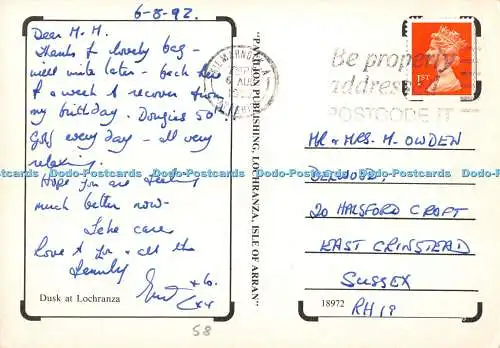 6-8-92.
Dear M. M.
Thanks for lovely bag -
will write later - back here
for a week to recover from
my birthday. Douglas 50
Golf every day - all very
relaxing.
Hope you are feeling
much better now-
Take care
Love to you & all the
family
Dusk at Lochranza
58
"PAVILION PUBLISHING, LOCHRANZA, ISLE OF ARRAN"
KILMARNOCK
AUG
Be properly
addressed
POSTCODE IT
1ST
MR & MRS. M. OWDEN
20 HALSFORD CROFT
EAST GRINSTEAD
SUSSEX
18972
RH19
Dodo-Postcards Dodo-Postcards Dodo-Postcards Dodo-Postcards